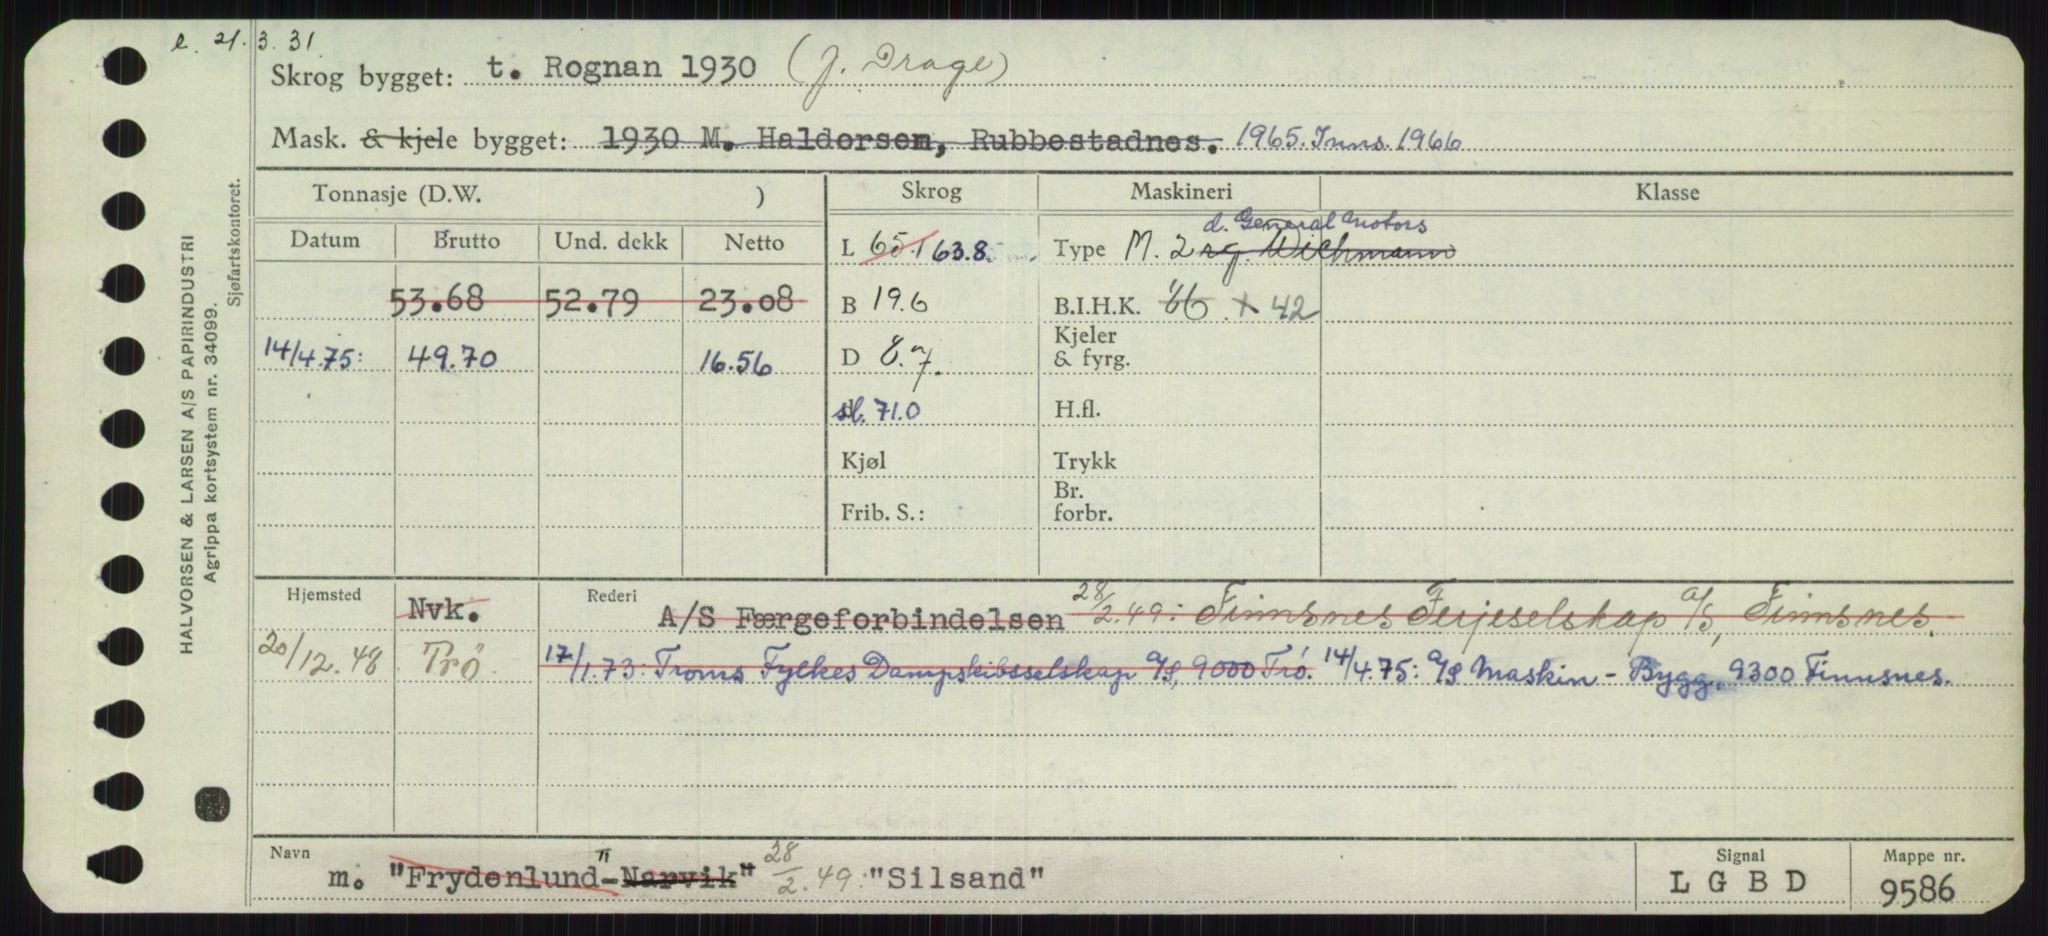 e. 21.3.31
Skrog bygget: t. Rognan 1930 (J. Drage)
Mask. & kjele bygget: 1930 M. Haldorsen, Rubbestadnes. 1965. Inns. 1966
Tonnasje (D.W. ) Skrog Maskineri Klasse
Datum Brutto Und. dekk Netto
d. General Motors
L 65.1 63.8 Type M. 2 rg. Wichmann
53.68 52.79 23.08 B 19.6 B.I.H.K. 66 x 42
14/4.75: 49.70 16.56 D 8.7. Kjeler & fyrg.
sl. 71.0 H.fl.
Kjøl Trykk
Frib. S.: Br. forbr.
Hjemsted Nvk. Rederi A/S Færgeforbindelsen 28/2.49: Finnsnes Ferjeselskap a/s, Finnsnes.
20/12.48 Trö. 17/1.73: Troms Fylkes Dampskibsselskap a/s, 9000 Trö. 14/4.75: a/s Maskin - Bygg, 9300 Finnsnes.
Navn m. "Frydenlund-Narvik" 28/2.49: "Silsand" Signal LGBD Mappe nr. 9586
HALVORSEN & LARSEN A/S PAPIRINDUSTRI
Agrippa kortsystem nr. 34099.
Sjøfartskontoret.